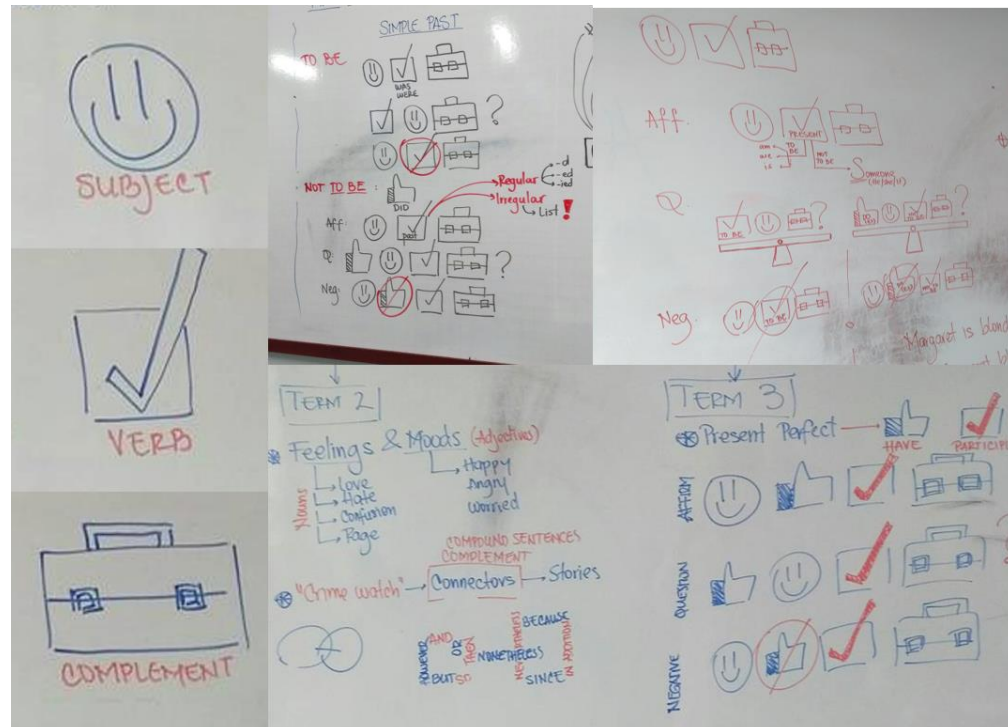 SUBJECT
VERB
COMPLEMENT
SIMPLE PAST
TO BE
WAS
WERE
?
NOT TO BE:
DID
Regular
-d
-ed
-ied
Irregular
List !
Aff:
PAST
Q:
?
Neg:
Aff.
PRESENT
am
are
is
TO BE
NOT TO BE
Someone
Q.
TO BE
?
?
Neg.
TO BE
Margaret is blond
TERM 2
Feelings & Moods (Adjectives)
Nouns
Love
Hate
Confusion
Rage
Happy
Angry
worried
COMPOUND SENTENCES
COMPLEMENT
"Crime watch" Connectors Stories
HOWEVER
AND
OR
THEN
BUT
SO
NONETHELESS
NEVERTHELESS
BECAUSE
SINCE
IN ADDITION
TERM 3
Present Perfect
HAVE
PARTICIPL
AFFIRM
QUESTION
NEGATIVE